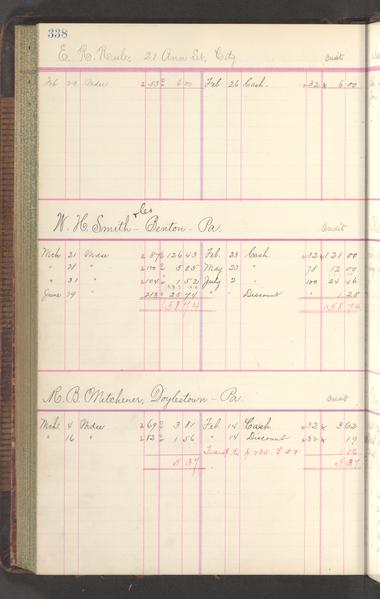 338
E. R. Rule, 21 Ann St. City
Credit
Feb 20 Mdse 2 6 00 Feb 26 Cash 32 6 00
W. H. Smith Benton - Pa.
Credit
Mch 21 Mdse 2 87 126 43 Feb. 23 Cash 32 121 00
" 28 " 5 05 May 23 " 78 12 00
" 31 " 2 104 1 52 July 2 " 100 24 46
June 19 " 213 25 74 " " Discount " 1 28
158 74 158 74
M. B. Mitchener, Doylestown - Pa.
Credit
Mch 4 Mdse 2 69 3 81 Feb 14 Cash 32 3 62
" 16 " 2 82 1 56 " 14 Discount 32 19
Transf to p 235 1 56
5 37 5 37